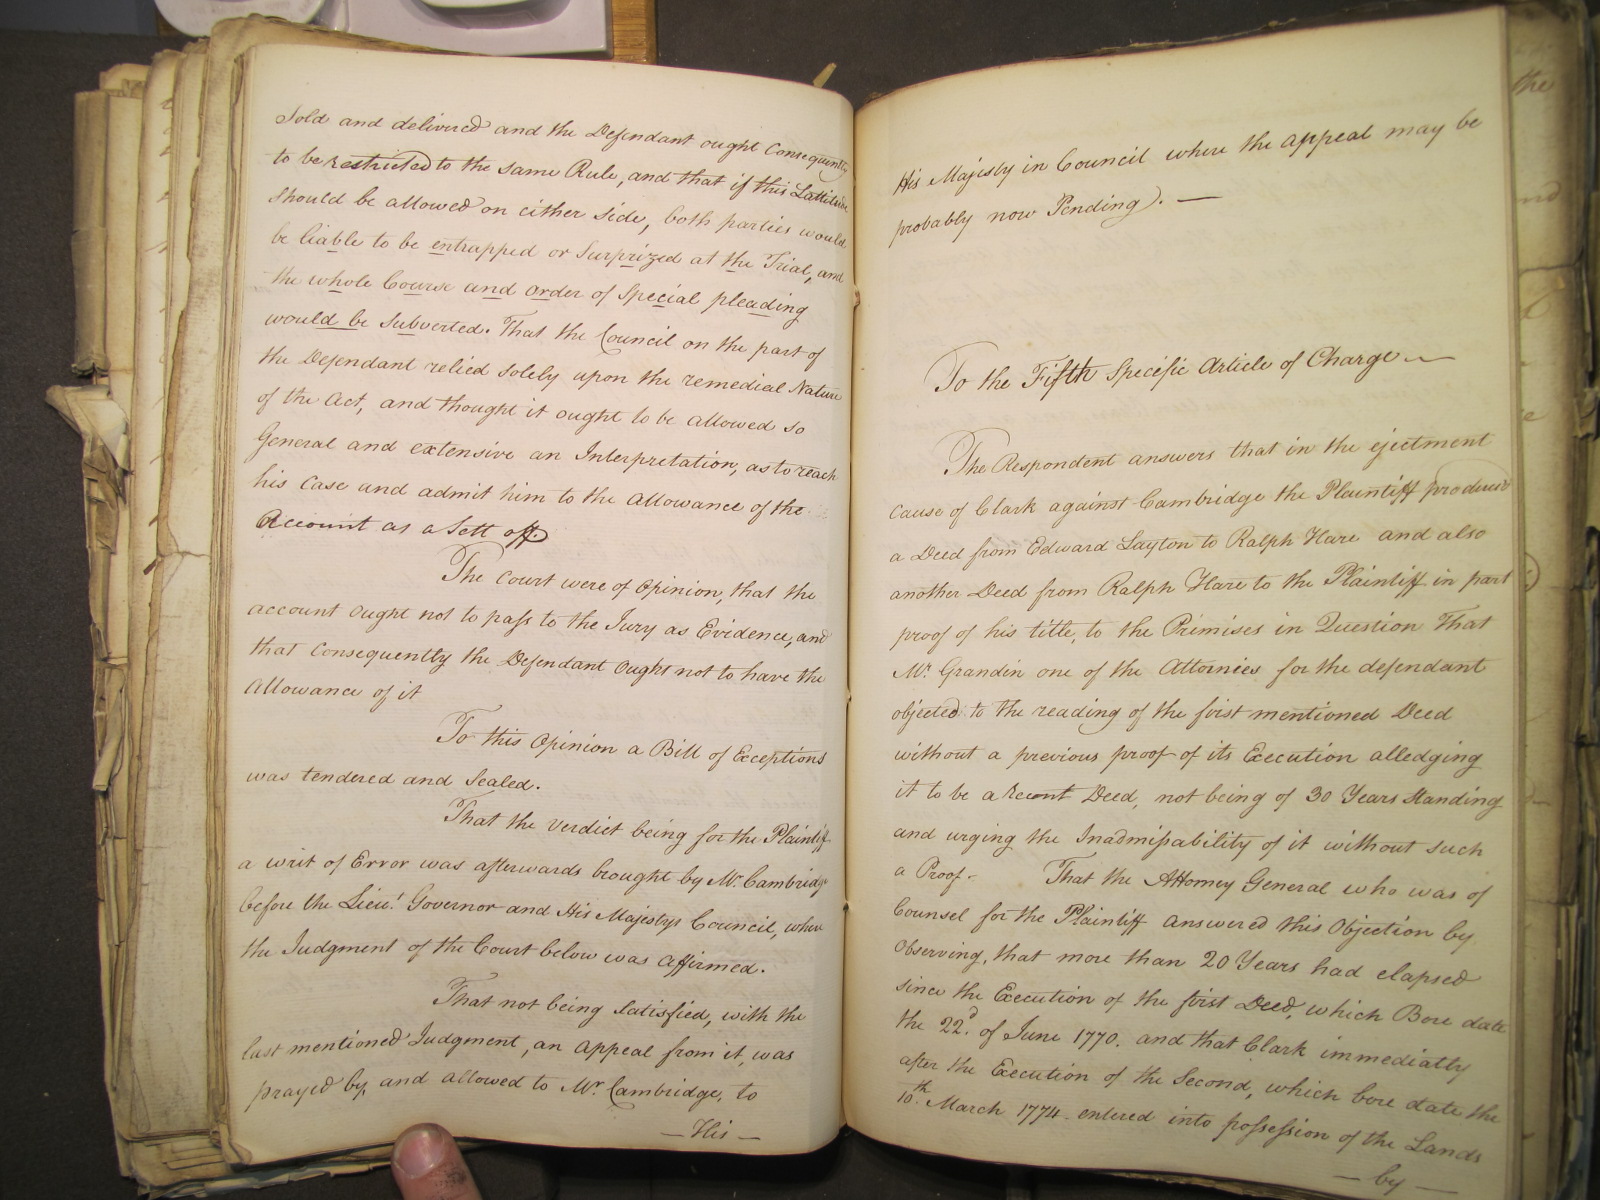 Sold and delivered and the Defendant ought Consequently
to be restricted to the same Rule, and that if this Lattitude
should be allowed on either side, both parties would
be liable to be entrapped or Surprized at the Trial, and
the whole Course and order of Special pleading
would be Subverted. That the Council on the part of
the Defendant relied solely upon the remedial Nature
of the Act, and thought it ought to be allowed so
General and extensive an Interpretation, as to reach
his Case and admit him to the Allowance of the
Account as a Sett off.
The Court were of Opinion, that the
account ought not to pass to the Jury as Evidence, and
that Consequently the Defendant Ought not to have the
Allowance of it
To this Opinion a Bill of Exceptions
was tendered and Sealed.
That the Verdict being for the Plaintiff
a writ of Error was afterwards brought by Mr. Cambridge
before the Lieut. Governor and His Majestys Council, when
the Judgment of the Court below was affirmed.
That not being Satisfied, with the
last mentioned Judgment, an Appeal from it, was
prayed by, and allowed to Mr. Cambridge, to
— His —
His Majesty in Council where the appeal may be
probably now Pending). —
To the Fifth Specific Article of Charge —
The Respondent answers that in the ejectment
cause of Clark against Cambridge the Plaintiff produced
a Deed from Edward Layton to Ralph Hare and also
another Deed from Ralph Hare to the Plaintiff in part
proof of his title, to the Premises in Question That
Mr. Grandin one of the Attornies for the defendant
objected to the reading of the first mentioned Deed
without a previous proof of its Execution alledging
it to be a Recent Deed, not being of 30 Years Standing
and urging the Inadmissability of it without such
a Proof - That the Attorney General who was of
Counsel for the Plaintiff answered this Objection by
Observing, that more than 20 Years had elapsed
since the Execution of the first Deed, which Bore date
the 22.d of June 1770. and that Clark immediatly
after the Execution of the Second, which bore date the
10.th March 1774 entered into possession of the Lands
— by —
the